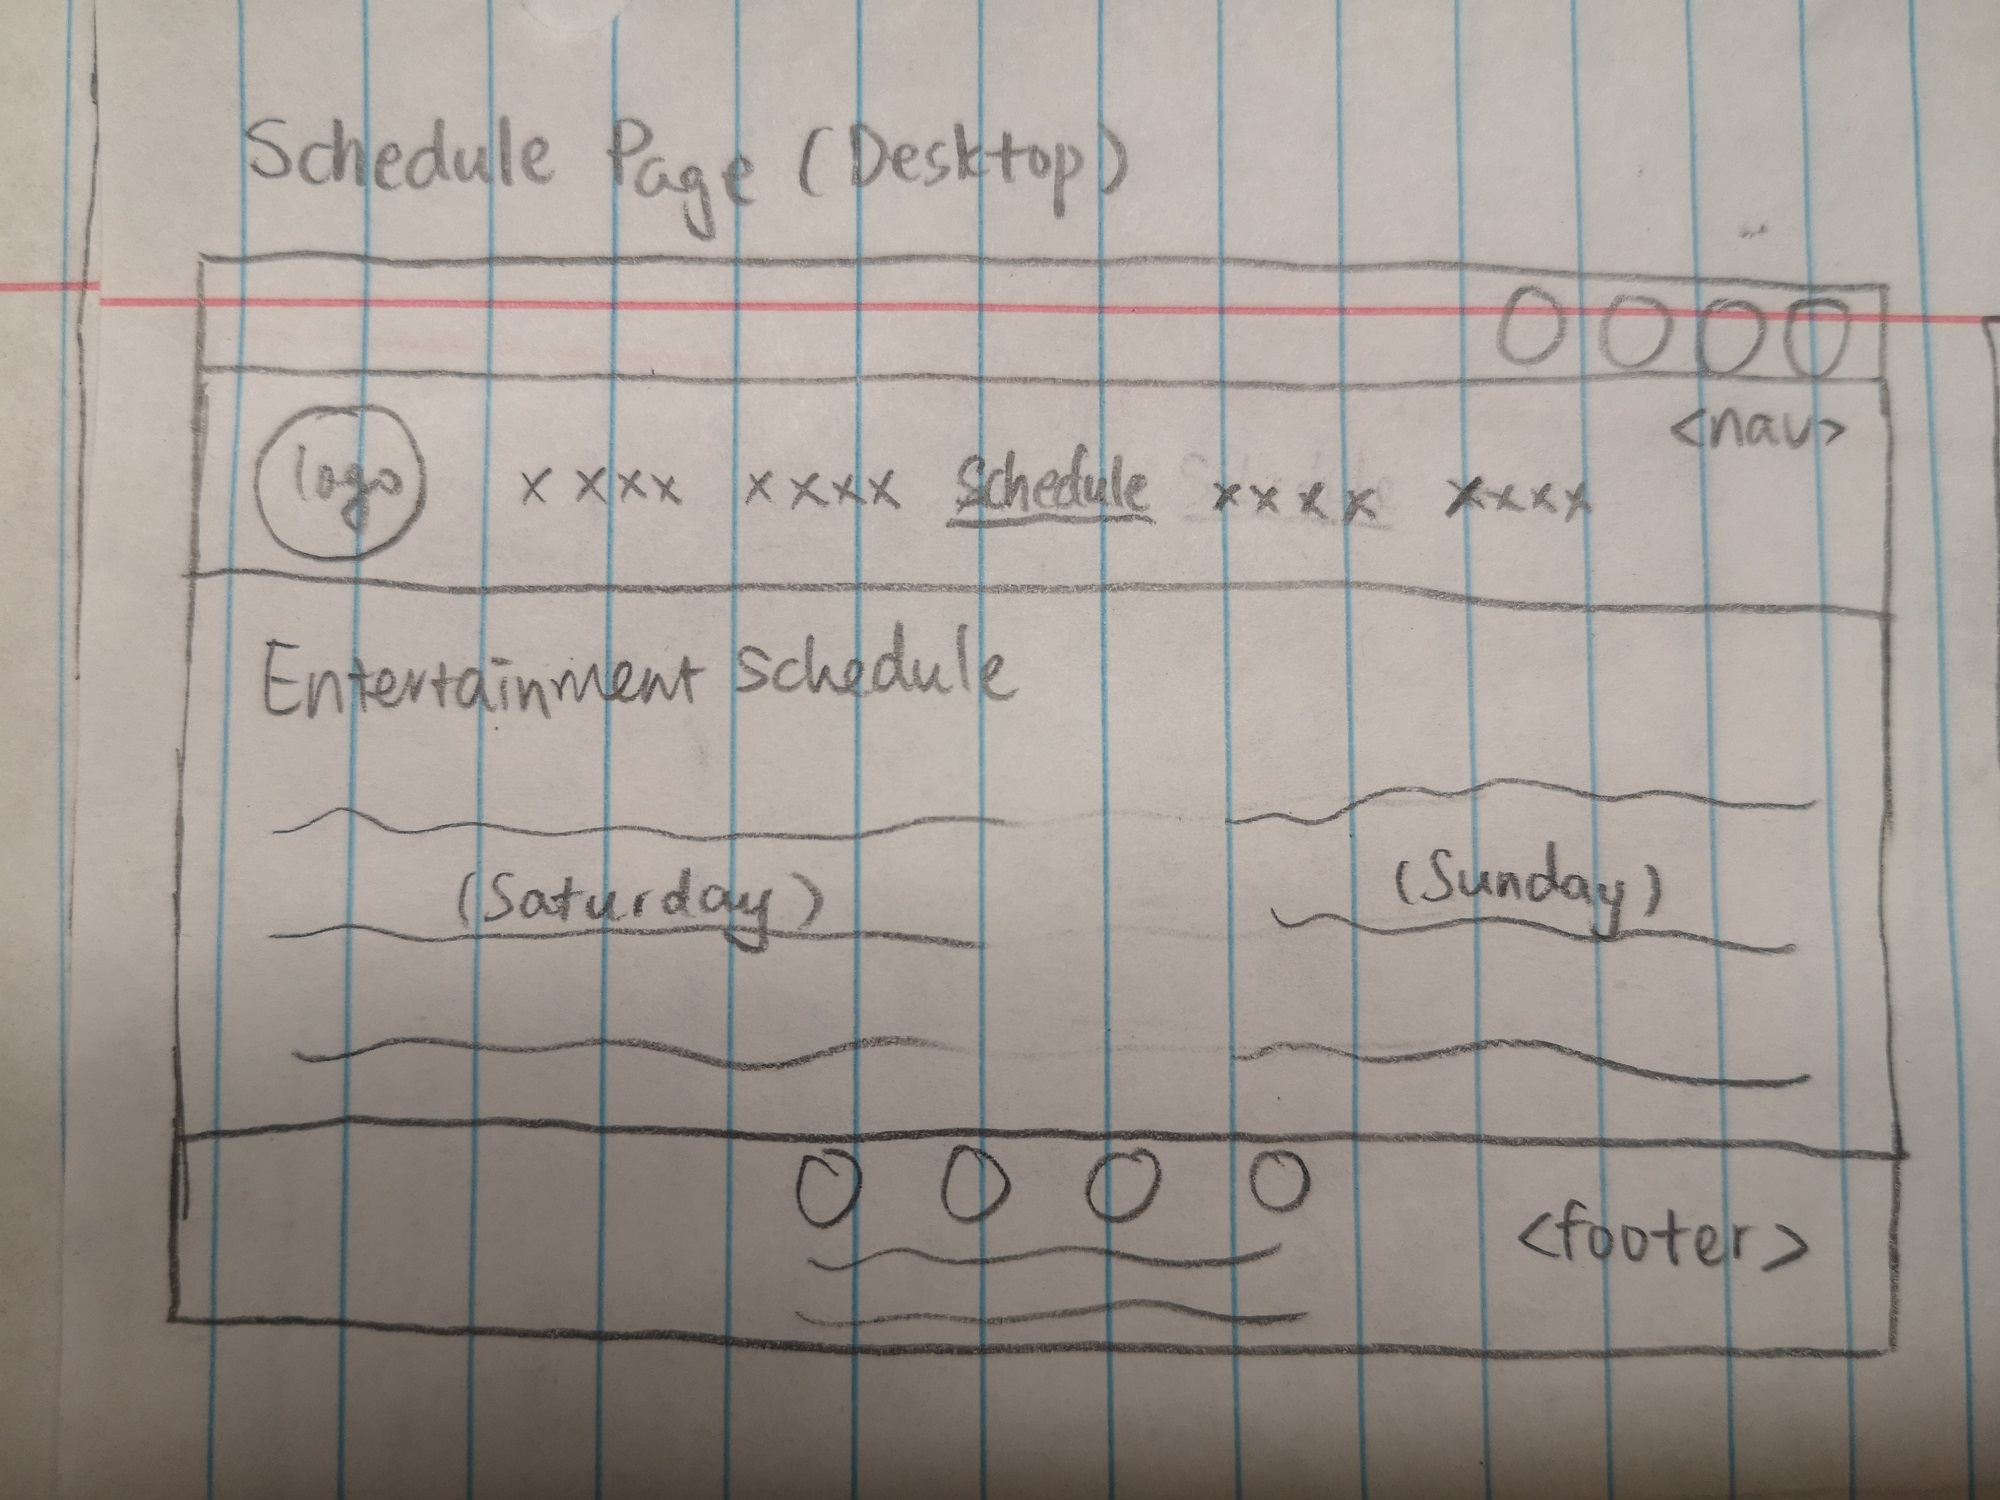 Schedule Page (Desktop)
<nav>
logo xxxx xxxx Schedule xxxx xxxx
Entertainment Schedule
(Saturday) (Sunday)
<footer>